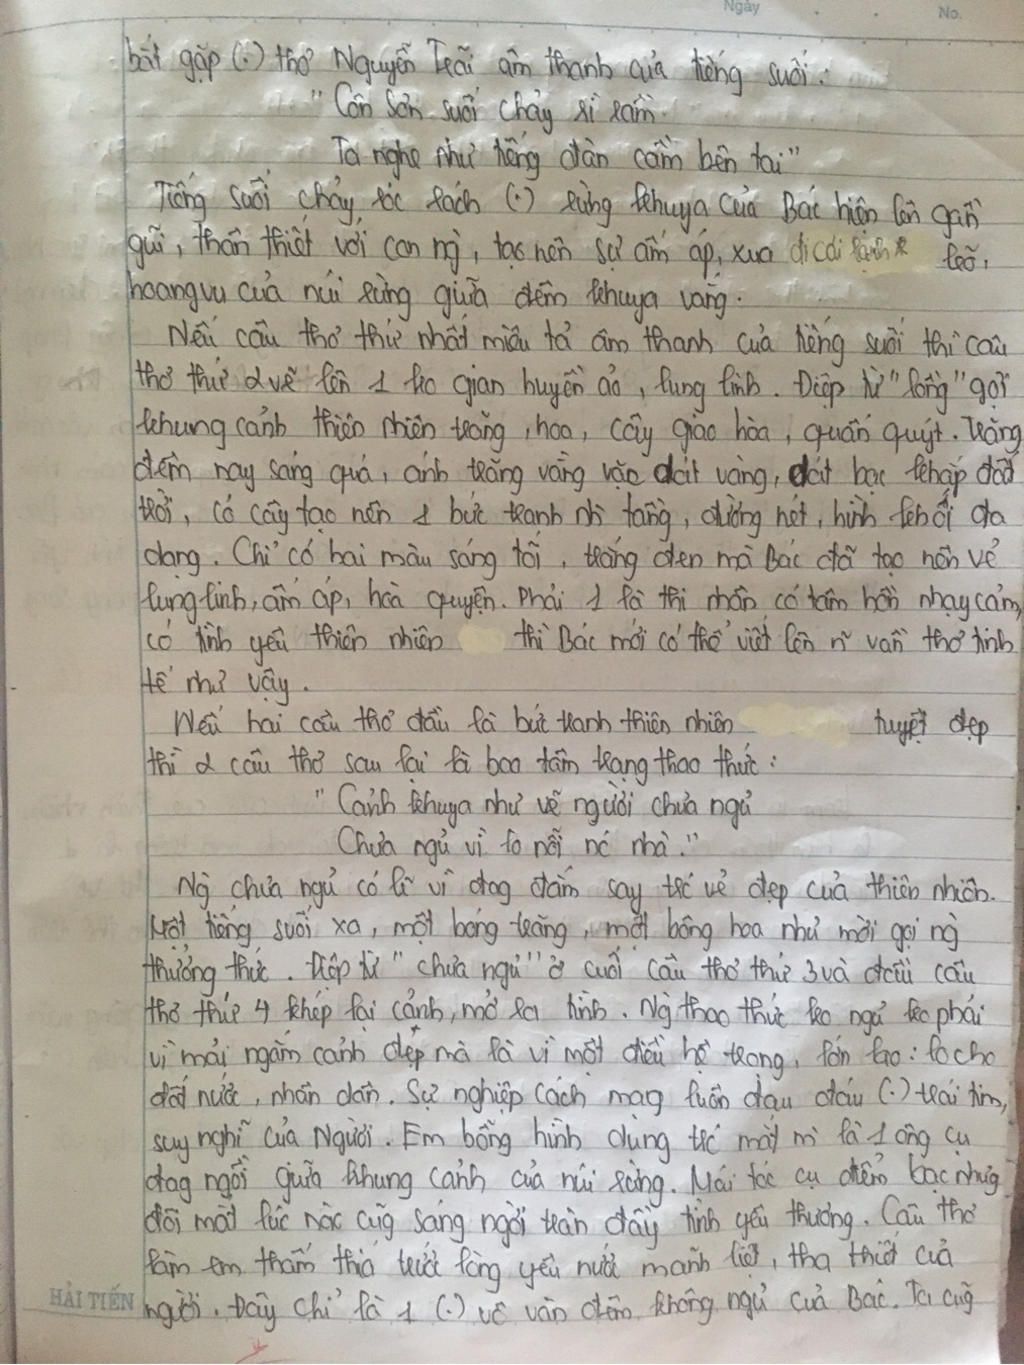 Ngày
No.
bắt gặp (.) thơ Nguyễn Trãi âm thanh của tiếng suối:
" Côn Sơn suối chảy rì rầm
Ta nghe như tiếng đàn cầm bên tai"
Tiếng suối chảy róc rách (.) rừng khuya của Bác hiện lên gần
gũi, thân thiết với con ng`, tạo nên sự ấm áp, xua đi cái lạnh lẽo,
hoang vu của núi rừng giữa đêm khuya vắng.
Nếu câu thơ thứ nhất miêu tả âm thanh của tiếng suối thì câu
thơ thứ 2 vẽ lên 1 ko gian huyền ảo, lung linh. Điệp từ "lồng" gợi
khung cảnh thiên nhiên trăng, hoa, cây giao hòa, quấn quýt. Trăng
đêm nay sáng quá, ánh trăng vằng vặc dát vàng, dát bạc khắp đất
trời, cỏ cây tạo nên 1 bức tranh nh` tầng, đường nét, hình khối đa
dạng. Chỉ có hai màu sáng tối, trắng đen mà Bác đã tạo nên vẻ
lung linh, ấm áp, hoà quyện. Phải 1 là thi nhân có tâm hồn nhạy cảm,
có tình yêu thiên nhiên thì Bác mới có thể viết lên n~ vần thơ tinh
tế như vậy.
Nếu hai câu thơ đầu là bức tranh thiên nhiên tuyệt đẹp
thì 2 câu thơ sau lại là bao tâm trạng thao thức:
" Cảnh khuya như vẽ người chưa ngủ
Chưa ngủ vì lo nỗi nc nhà."
Ng` chưa ngủ có lẽ vì đag đắm say trc vẻ đẹp của thiên nhiên.
Một tiếng suối xa, một bóng trăng, một bông hoa như mời gọi ng`
thưởng thức. Điệp từ "chưa ngủ" ở cuối câu thơ thứ 3 và đầu câu
thơ thứ 4 khép lại cảnh, mở ra tình. Ng` thao thức ko ngủ ko phải
vì mải ngắm cảnh đẹp mà là vì một điều hệ trọng, lớn lao: lo cho
đất nước, nhân dân. Sự nghiệp cách mạg luôn đau đáu (.) trái tim,
suy nghĩ của Người. Em bỗng hình dung trc mắt m` là 1 ông cụ
đag ngồi giữa khung cảnh của núi rừng. Mái tóc cụ điểm bạc nhưg
đôi mắt lúc nào cũg sáng ngời tràn đầy tình yêu thương. Câu thơ
làm em thấm thía trước lòng yêu nước mãnh liệt, tha thiết của
người. Đây chỉ là 1 (.) vô vàn đêm không ngủ của Bác. Ta cũg
HẢI TIẾN